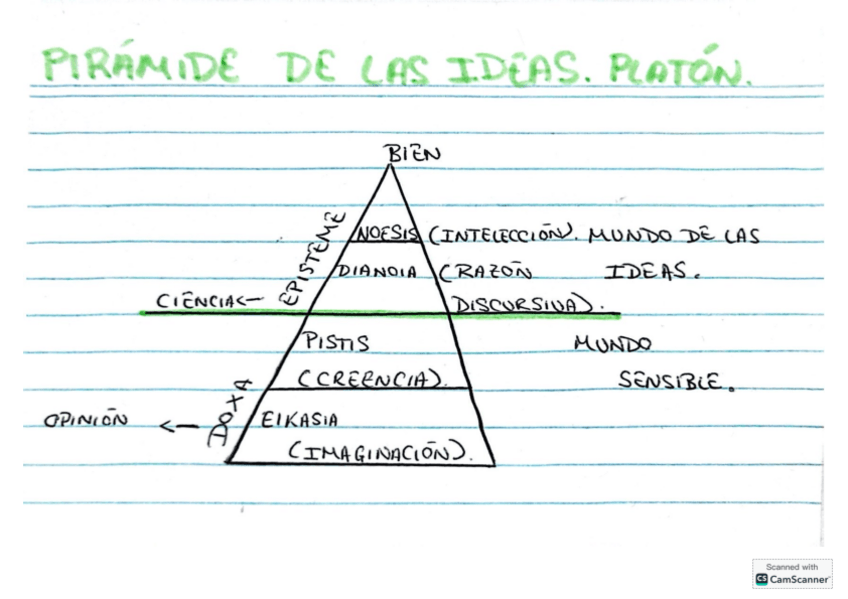 PIRÁMIDE DE LAS IDEAS. PLATÓN.
BIEN
EPISTEME
NOESIS (INTELECCIÓN). MUNDO DE LAS
DIANOIA (RAZÓN IDEAS.
CIÉNCIA<— DISCURSIVA).
PISTIS MUNDO
(CREENCIA). SENSIBLE.
DOXA
OPINIÓN <— EIKASIA
(IMAGINACIÓN).
Scanned with
CS CamScanner